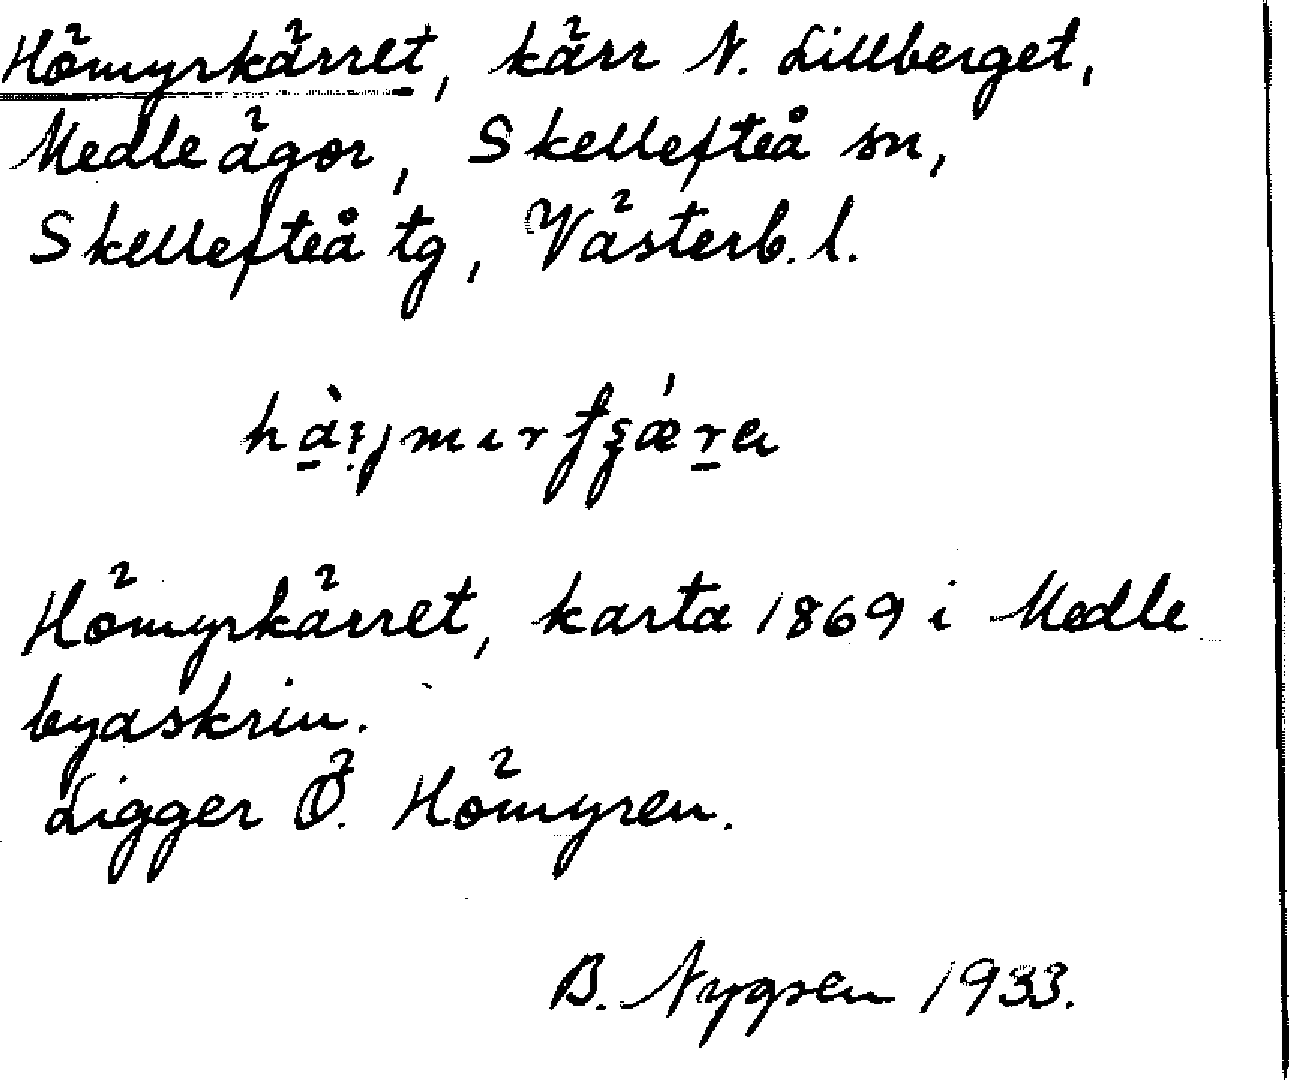 Hömyrkärret, kärr N. Lillberget,
Medle ägor, Skellefteå sn,
Skellefteå tg, Västerb. l.
Hömyrkärret, karta 1869 i Medle
byaskrin.
Ligger Ö. Hömyren.
B. Nygren 1933.